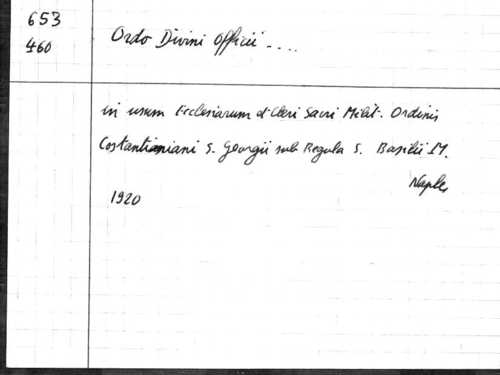 653
460
Ordo Divini Officii ....
in usum Ecclesiarum et Cleri Sacri Milit. Ordinis
Costantiniani S. Georgii sub Regula S. Basilii M.
Naples
1920